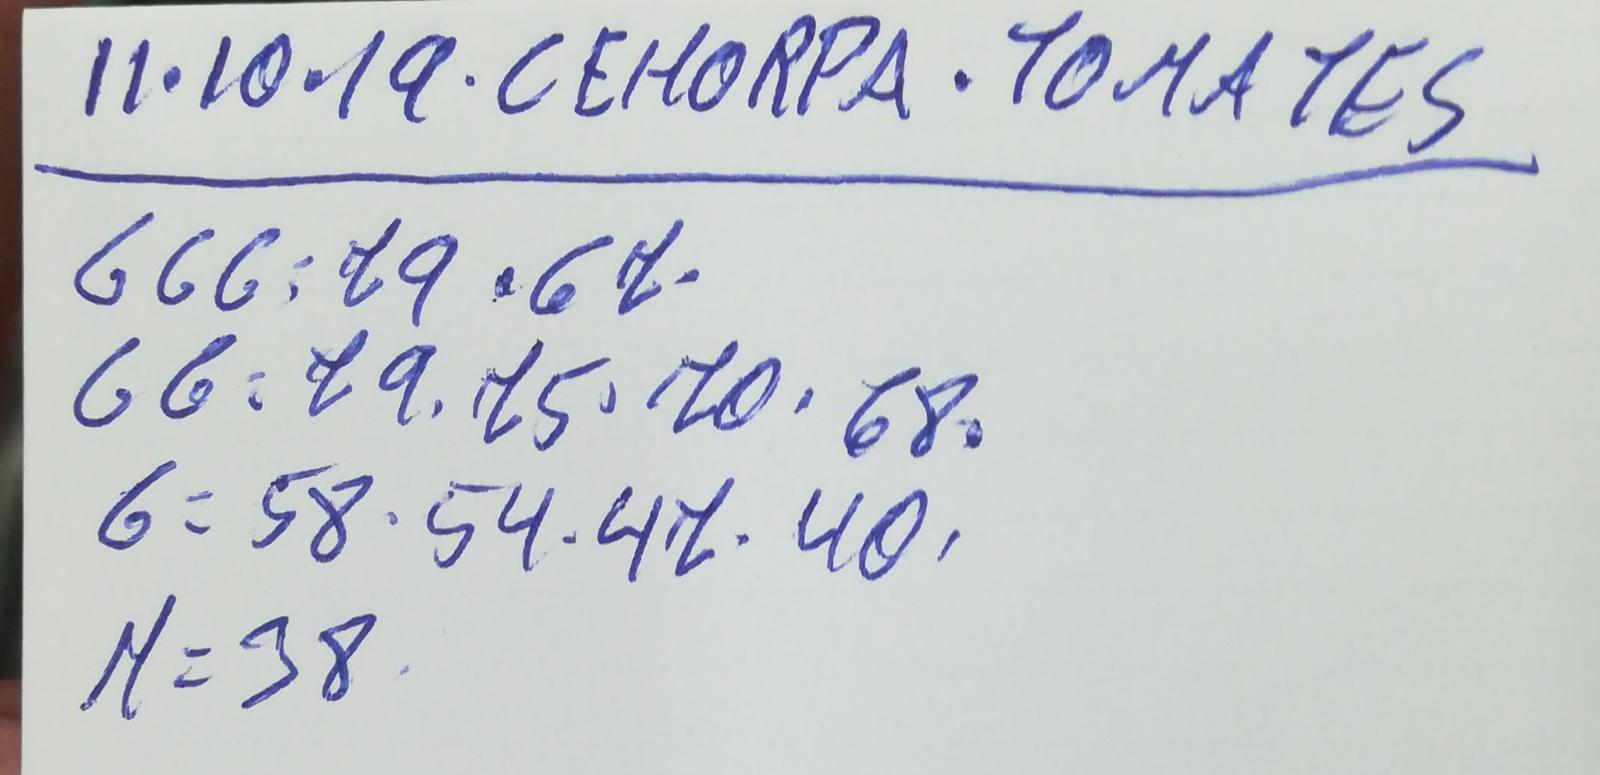 11.10.19. CEHORPA. TOMATES
GGG: 79.67.
GG: 79.75.70.68.
G= 58.54.47.40.
M=38.